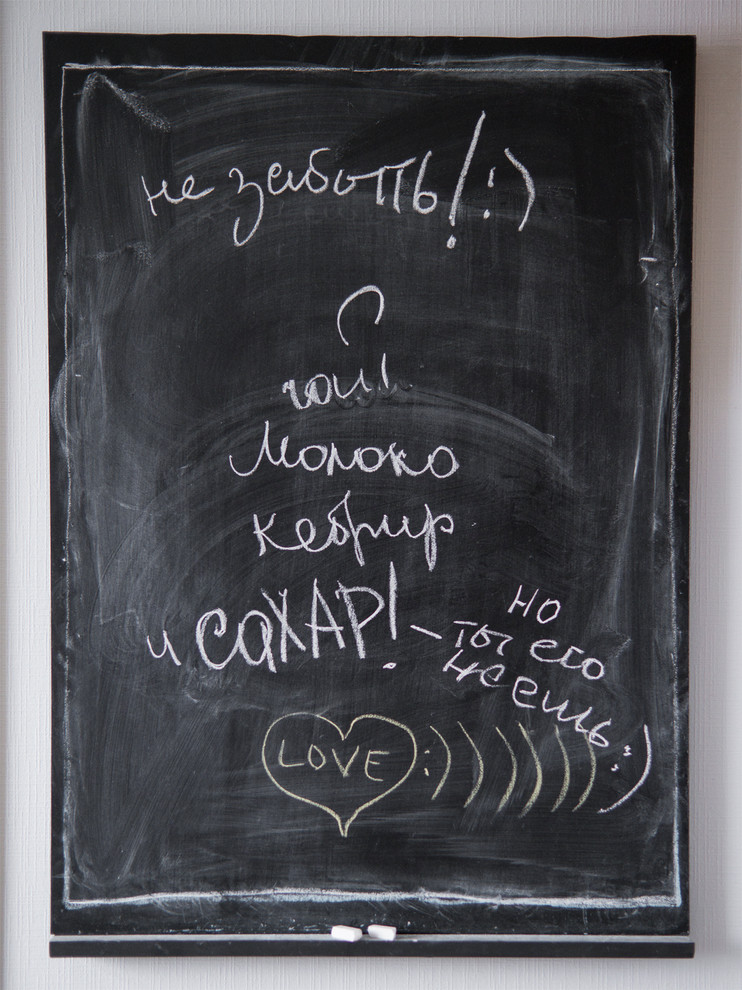 не забыть! :)
Молоко
кефир
и САХАР! – но
ты его
не ешь :)
LOVE :))))))